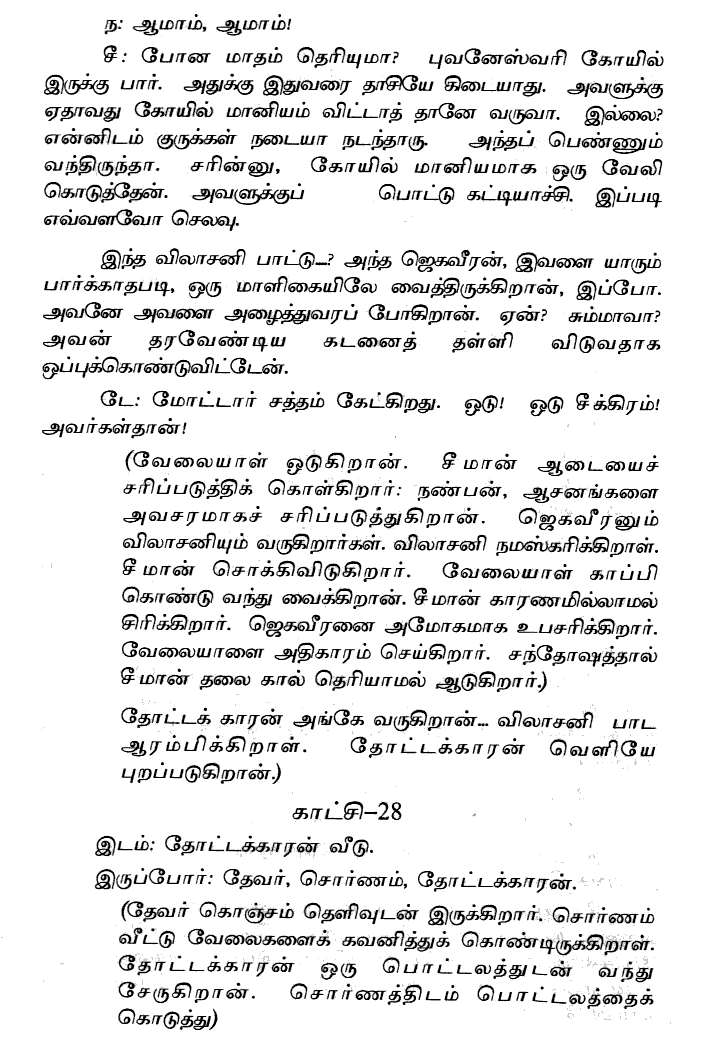 ந: ஆமாம், ஆமாம்!
சீ: போன மாதம் தெரியுமா? புவனேஸ்வரி கோயில்
இருக்கு பார். அதுக்கு இதுவரை தாசியே கிடையாது. அவளுக்கு
ஏதாவது கோயில் மானியம் விட்டாத் தானே வருவா. இல்லை?
என்னிடம் குருக்கள் நடையா நடந்தாரு. அந்தப் பெண்ணும்
வந்திருந்தா. சரின்னு, கோயில் மானியமாக ஒரு வேலி
கொடுத்தேன். அவளுக்குப் பொட்டு கட்டியாச்சி. இப்படி
எவ்வளவோ செலவு.
இந்த விலாசனி பாட்டு...? அந்த ஜெகவீரன், இவளை யாரும்
பார்க்காதபடி, ஒரு மாளிகையிலே வைத்திருக்கிறான், இப்போ.
அவனே அவளை அழைத்துவரப் போகிறான். ஏன்? சும்மாவா?
அவன் தரவேண்டிய கடனைத் தள்ளி விடுவதாக
ஒப்புக்கொண்டுவிட்டேன்.
டே: மோட்டார் சத்தம் கேட்கிறது. ஒடு! ஒடு சீக்கிரம்!
அவர்கள்தான்!
(வேலையாள் ஒடுகிறான். சீமான் ஆடையைச்
சரிப்படுத்திக் கொள்கிறார்: நண்பன், ஆசனங்களை
அவசரமாகச் சரிப்படுத்துகிறான். ஜெகவீரனும்
விலாசனியும் வருகிறார்கள். விலாசனி நமஸ்கரிக்கிறாள்.
சீமான் சொக்கிவிடுகிறார். வேலையாள் காப்பி
கொண்டு வந்து வைக்கிறான். சீமான் காரணமில்லாமல்
சிரிக்கிறார். ஜெகவீரனை அமோகமாக உபசரிக்கிறார்.
வேலையாளை அதிகாரம் செய்கிறார். சந்தோஷத்தால்
சீமான் தலை கால் தெரியாமல் ஆடுகிறார்.)
தோட்டக் காரன் அங்கே வருகிறான்... விலாசனி பாட
ஆரம்பிக்கிறாள். தோட்டக்காரன் வெளியே
புறப்படுகிறான்.)
காட்சி–28
இடம்: தோட்டக்காரன் வீடு.
இருப்போர்: தேவர், சொர்ணம், தோட்டக்காரன்.
(தேவர் கொஞ்சம் தெளிவுடன் இருக்கிறார். சொர்ணம்
வீட்டு வேலைகளைக் கவனித்துக் கொண்டிருக்கிறாள்.
தோட்டக்காரன் ஒரு பொட்டலத்துடன் வந்து
சேருகிறான். சொர்ணத்திடம் பொட்டலத்தைக்
கொடுத்து)